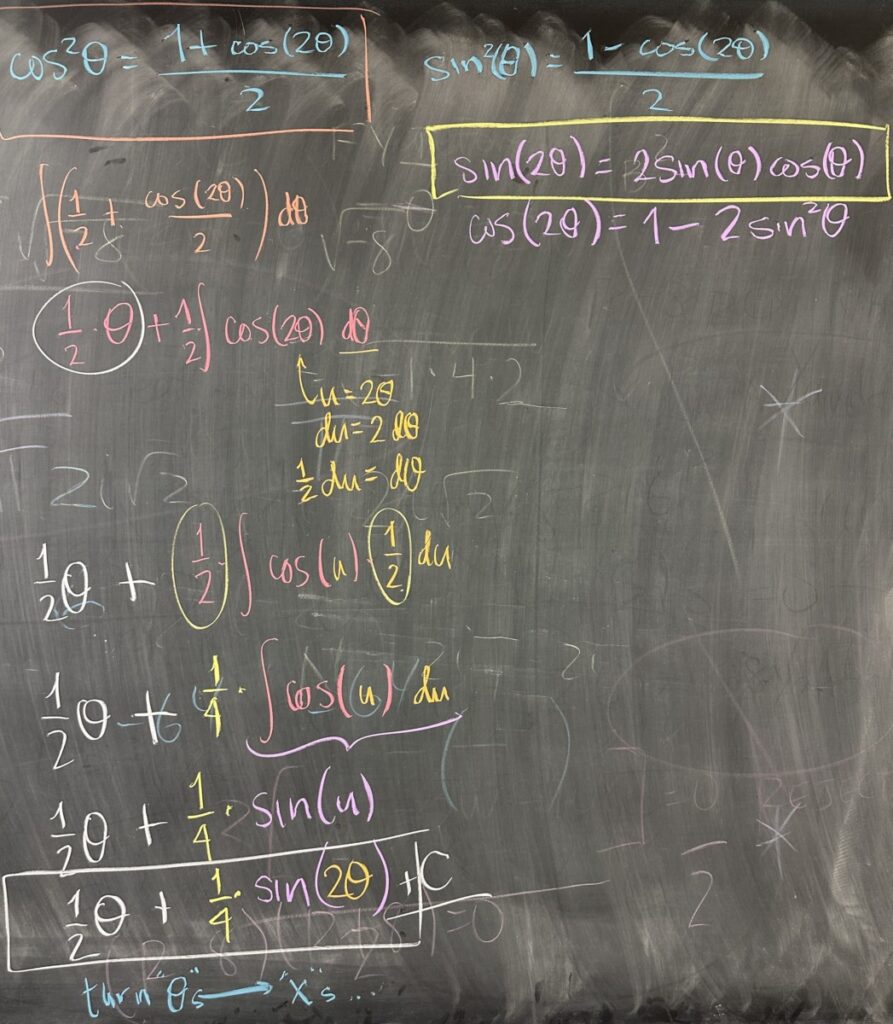 cos²θ = (1 + cos(2θ))/2
sin²(θ) = (1 - cos(2θ))/2
sin(2θ) = 2sin(θ)cos(θ)
cos(2θ) = 1 - 2sin²θ
∫(1/2 + cos(2θ)/2) dθ
1/2 · θ + 1/2 ∫ cos(2θ) dθ
u = 2θ
du = 2 dθ
1/2 du = dθ
1/2 θ + 1/2 ∫ cos(u) · 1/2 du
1/2 θ + 1/4 · ∫ cos(u) du
1/2 θ + 1/4 · sin(u)
1/2 θ + 1/4 · sin(2θ) + C
turn "θ"s → "x"s...